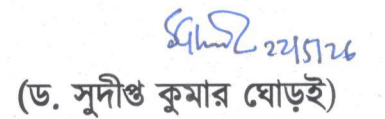 22/5/26
(ড. সুদীপ্ত কুমার ঘোড়ই)